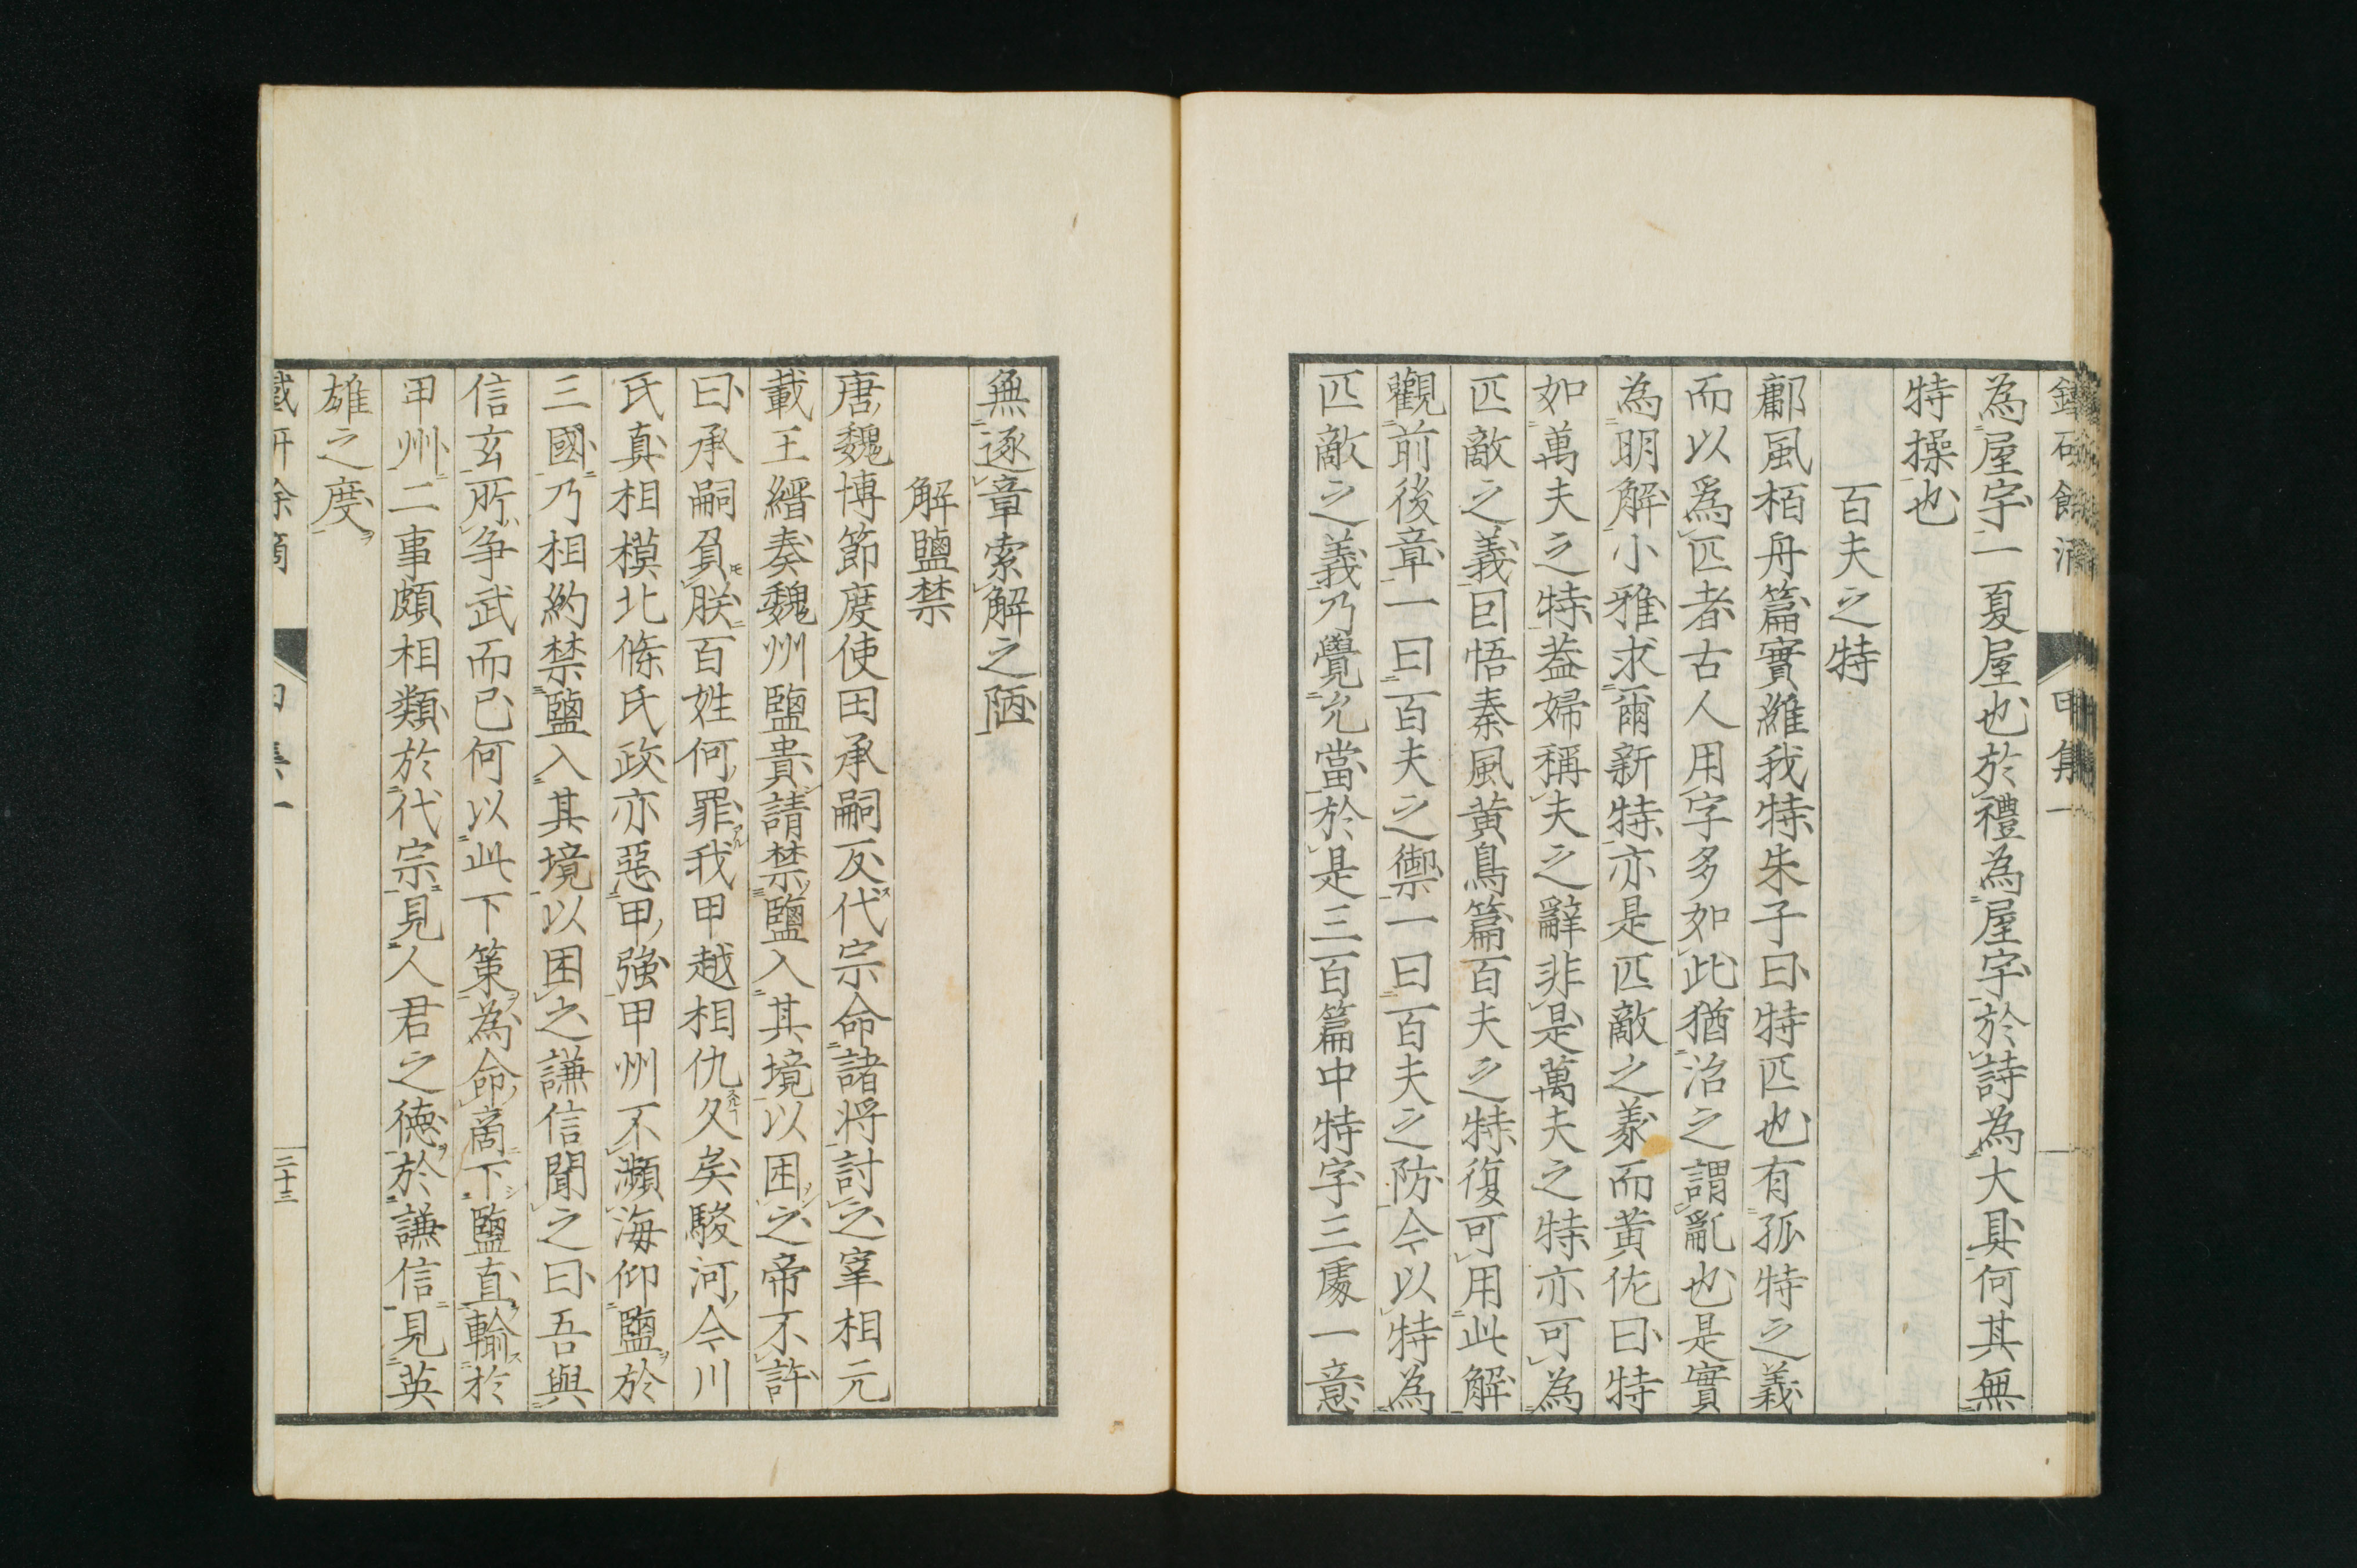 甲集一
為屋字一夏屋也於禮為屋字於詩為大具何其無
特操也
百夫之特
鄘風栢舟篇實維我特朱子曰特匹也有孤特之義
而以爲匹者古人用字多如此猶治之謂亂也是實
為明解小雅求爾新特亦是匹敵之義而黃佐曰特
如萬夫之特葢婦稱夫之辭非是萬夫之特亦可為
匹敵之義囙悟秦風黄鳥篇百夫之特復可用此解
觀前後章一曰百夫之禦一曰百夫之防今以特為
匹敵之義乃覺允當於是三百篇中特字三處一意
無逐章索解之陋
解鹽禁
唐魏博節度使田承嗣反代宗命諸将討之宰相元
載王縉奏魏州鹽貴請禁鹽入其境以困之帝不許
曰承嗣負朕百姓何罪我甲越相仇久矣駿河今川
氏真相模北條氏政亦惡甲強甲州不瀕海仰鹽於
三國乃相約禁鹽入其境以困之謙信聞之曰吾與
信玄所争武而已何以此下策為命啇下鹽直輸於
甲州二事頗相類於代宗見人君之德於謙信見英
雄之度
三十三